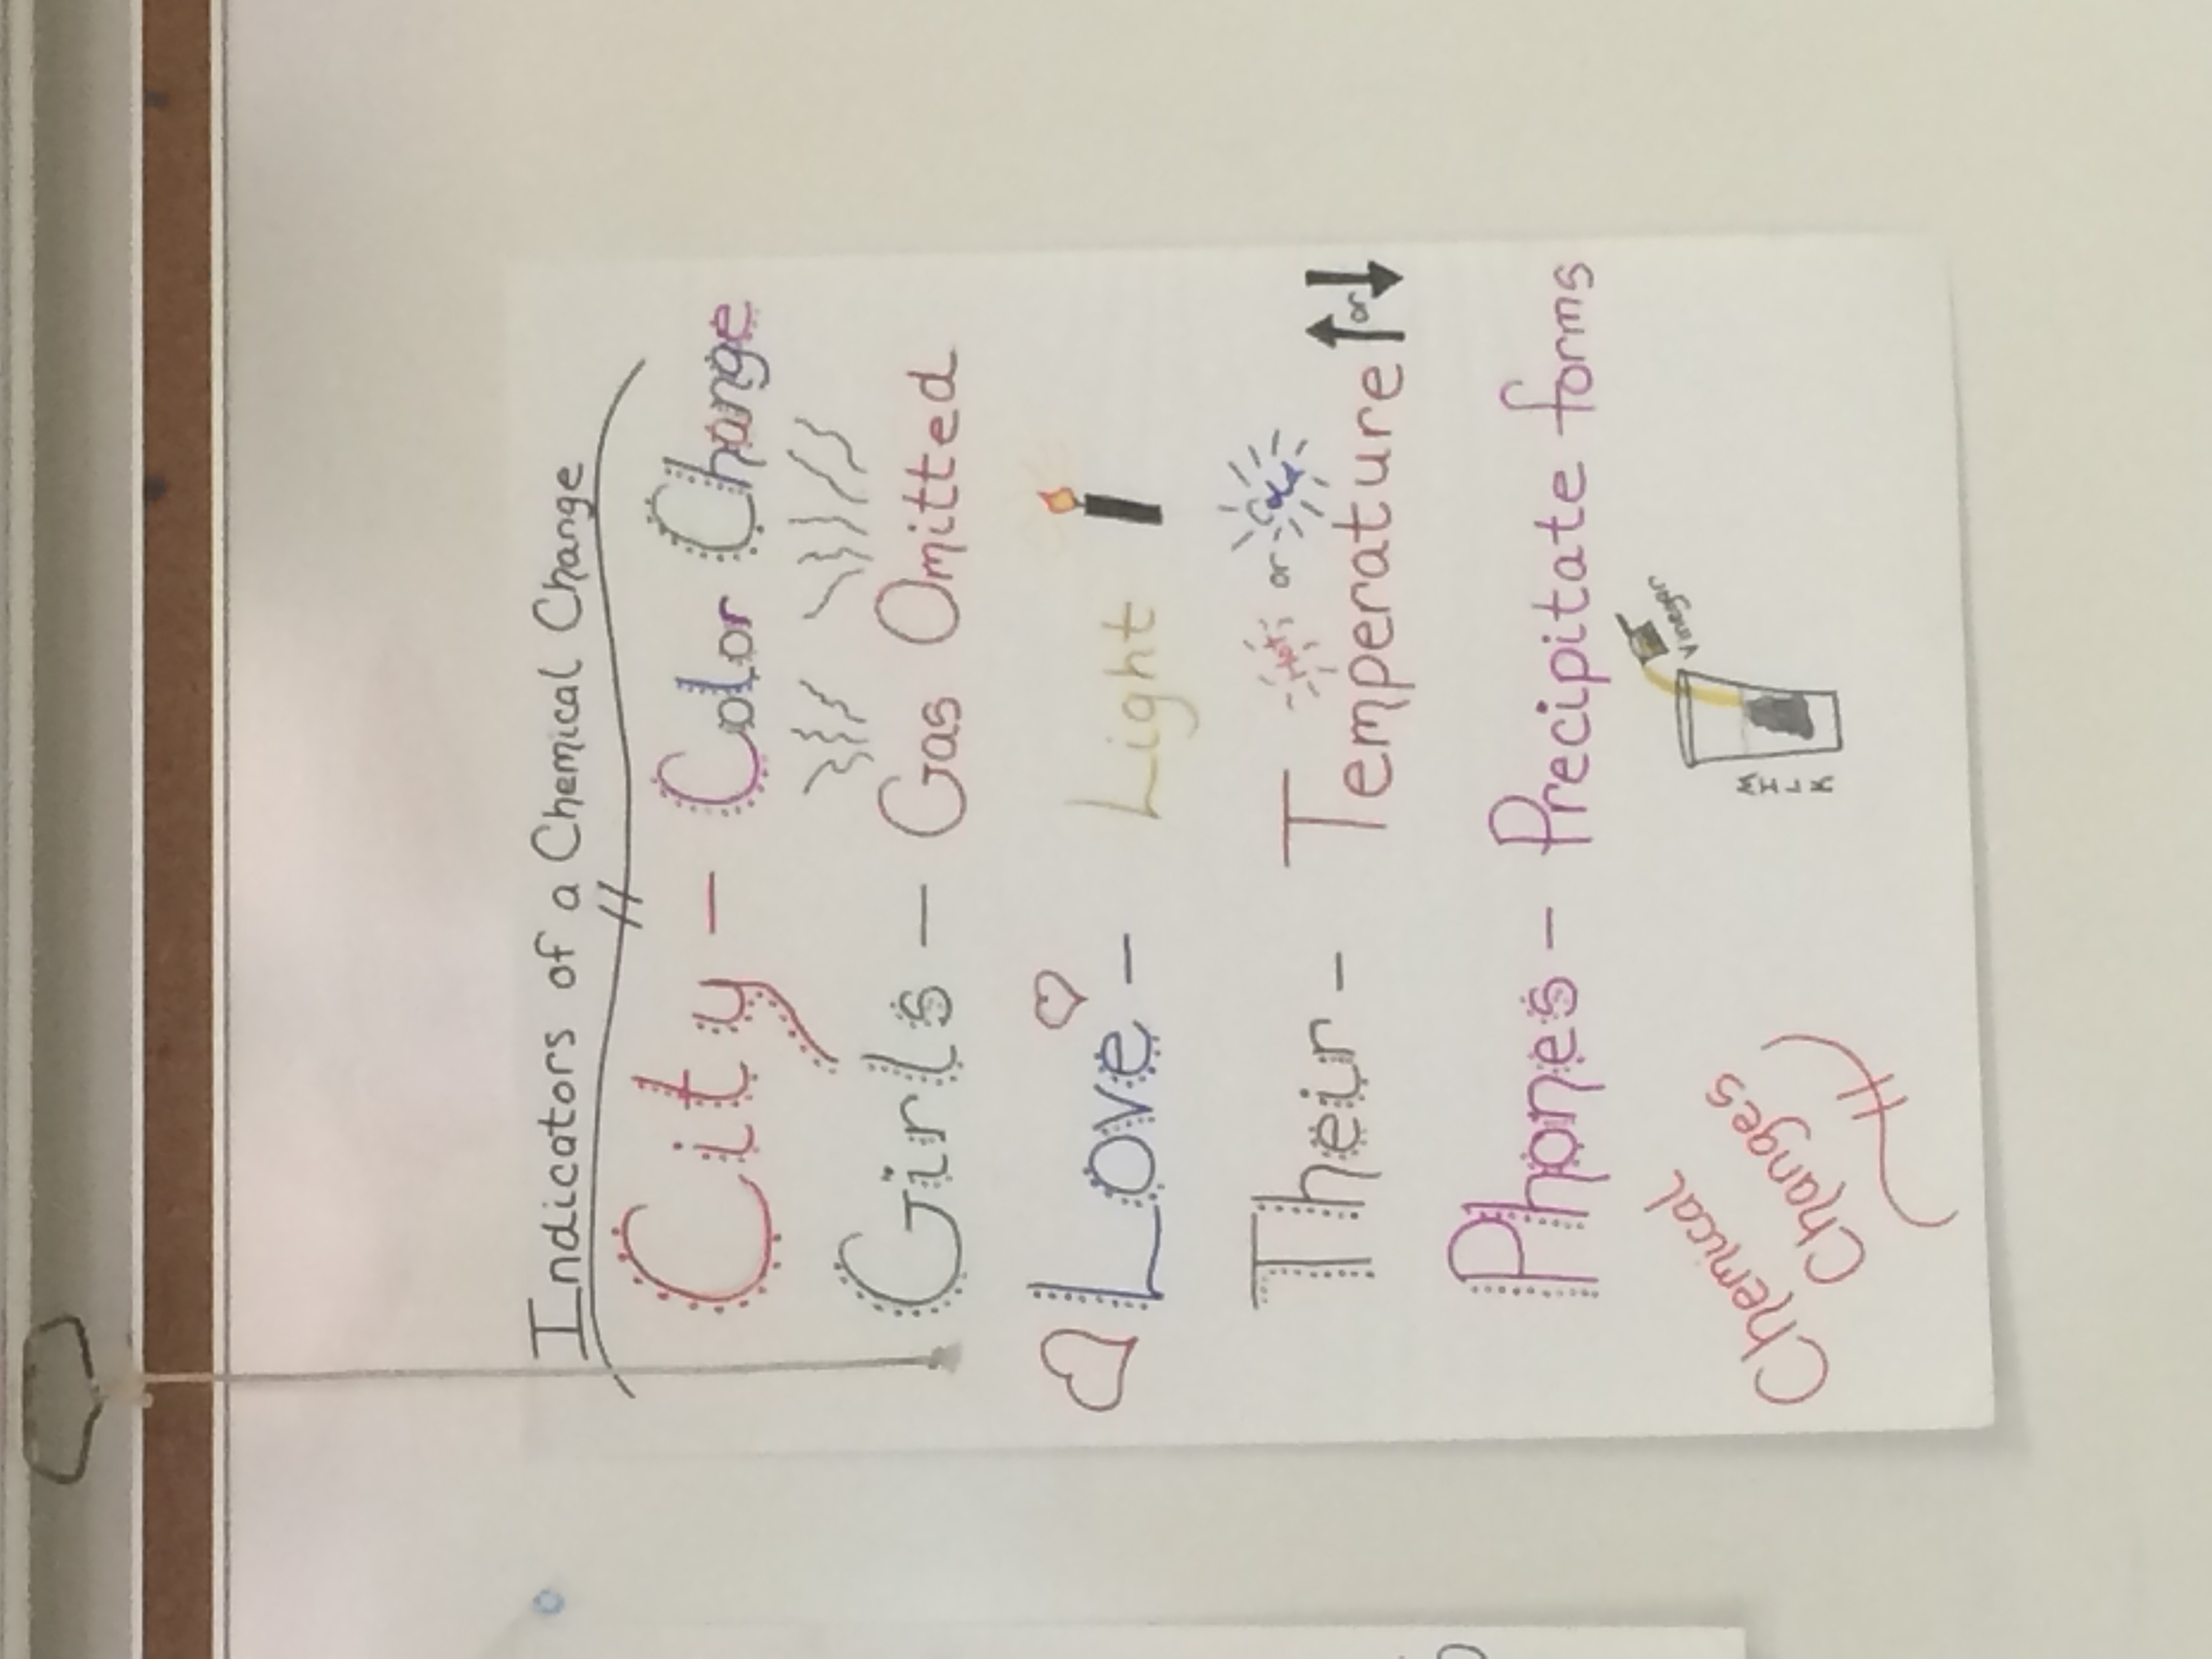 Indicators of a Chemical Change
City - Color Change
Girls - Gas Omitted
Love - Light
Hot or Cold
Their - Temperature ↑ or ↓
Phones - Precipitate forms
Vinegar
MILK
Chemical
Changes